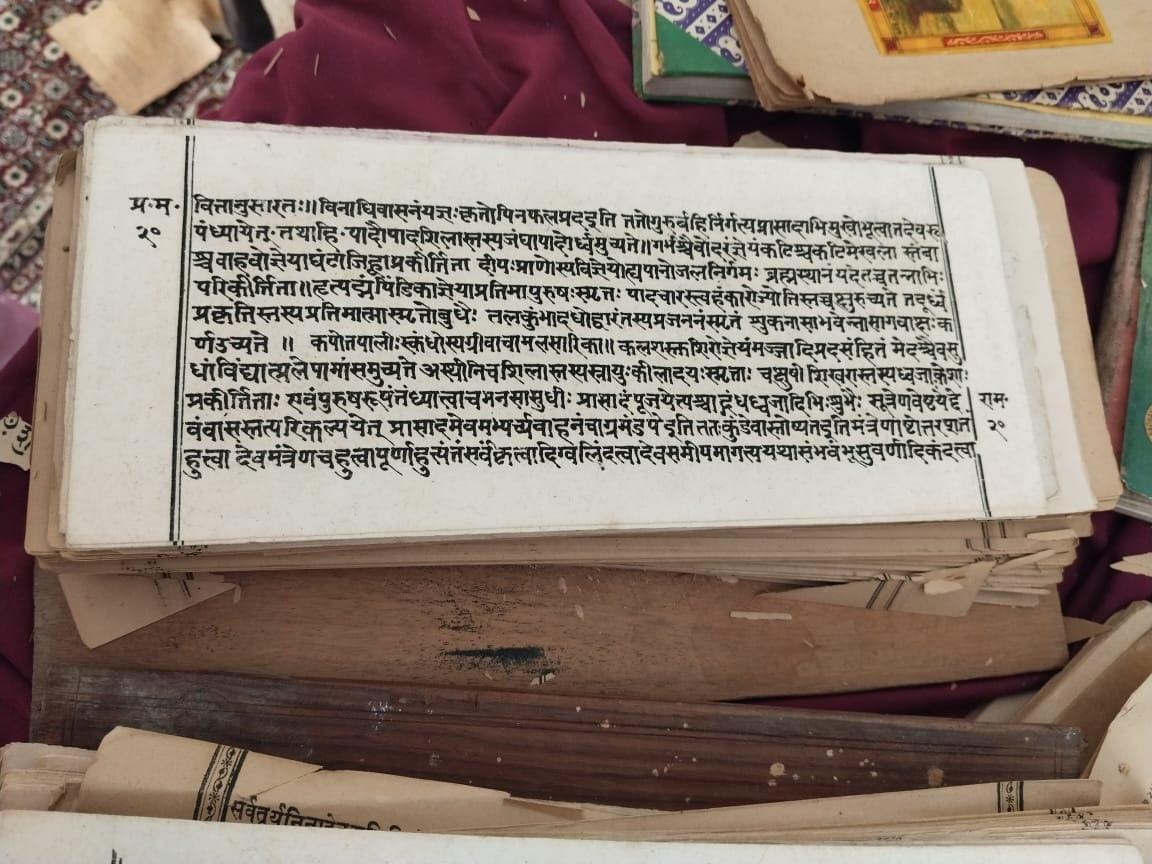 प्र·म·
२०
वित्तानुसारतः॥विनाधिवासनंयज्ञःकृतोपिनफलप्रदइति ततोगुरुर्बहिर्निर्गत्यप्रासादाभिमुखोभूत्वातदेवरू
पंध्यायेत्·तथाहि·पादौपादशिलास्तस्यजंघापादोर्ध्वमुच्यते॥गर्भश्चैवोदरंज्ञेयंकटिश्चकटिमेखला स्तंभा
श्चबाहवोज्ञेयाघंटाजिह्वाप्रकीर्तिता दीपःप्राणोस्यविज्ञेयोह्यपानोजलनिर्गमः ब्रह्मस्थानंयदेतच्चतन्नाभिः
परिकीर्तिता॥हृत्पद्मंपिंडिकाज्ञेयाप्रतिमापुरुषःस्मृतः पादचारस्त्वहंकारोज्योतिस्तच्चक्षुरुच्यते तदूर्ध्वं
प्रकृतिस्तस्यप्रतिमात्मास्मृतोबुधैः तलकुंभादधोद्वारंतस्यप्रजननंस्मृतं शुकनासाभवेन्नासागवाक्षःक
र्णउच्यते ॥ कपोतपालीःस्कंधोस्यग्रीवाचामलसारिका॥कलशस्तुशिरोज्ञेयंमज्जादिप्रदसंहितं मेदश्चैवसु
धांविंद्यात्प्रलेपोमांसमुच्यते अस्थीनिचशिलास्तस्यस्नायुःकीलादयःस्मृताः चक्षुषी शिखरास्तस्यध्वजाकेशाः
प्रकीर्तिताः एवंपुरुषरूपंतंध्यात्वाचमनसासुधीः प्रासादंपूजयेत्पश्चाद्गंधध्वजादिभिःशुभैः सूत्रेणवेष्टयेद्दे
वंवासस्तत्परिकल्पयेत् प्रासादमेवमभ्यर्च्यवाहनंचाग्रमंडपे इति ततःकुंडेवास्तोष्पतइतिमंत्रेणाष्टोत्तरशतं
हुत्वा देवमंत्रेणचहुत्वापूर्णाहुत्यंतंसर्वंकृत्वादिग्बलिंदत्वादेवसमीपमागत्ययथासंभवंभूसुवर्णादिकंदत्वा
राम·
२०